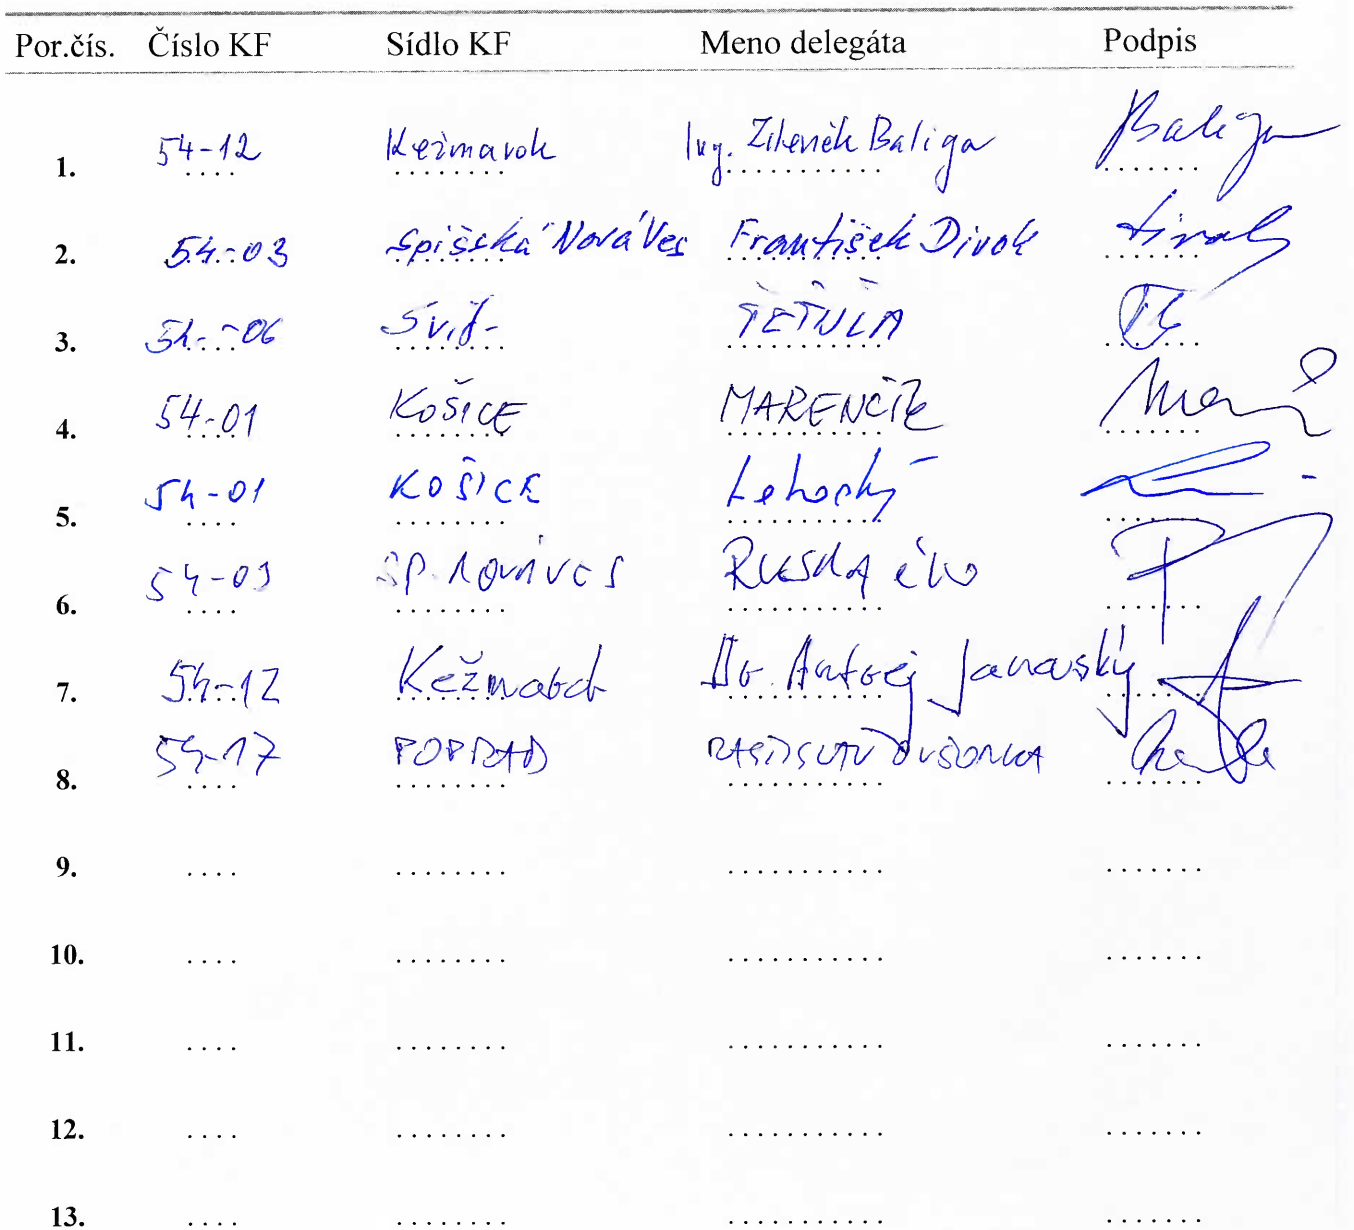 Por.čís. Číslo KF Sídlo KF Meno delegáta Podpis
1. 54-12 Kežmarok Ing. Zdeněk Baliga Baliga
2. 54-03 Spišská Nová Ves František Divok
3. 54-06 Svit ŤEŤULA
4. 54-01 KOŠICE MARENČÍK
5. 54-01 KOŠICE Lehocký
6. 54-03 SP. NOVÁ VES RUSNA
7. 54-12 Kežmarok Janovský
8. 54-17 POPRAD
9. .... ........ ........... .......
10. .... ........ ........... .......
11. .... ........ ........... .......
12. .... ........ ........... .......
13. .... ........ ........... .......